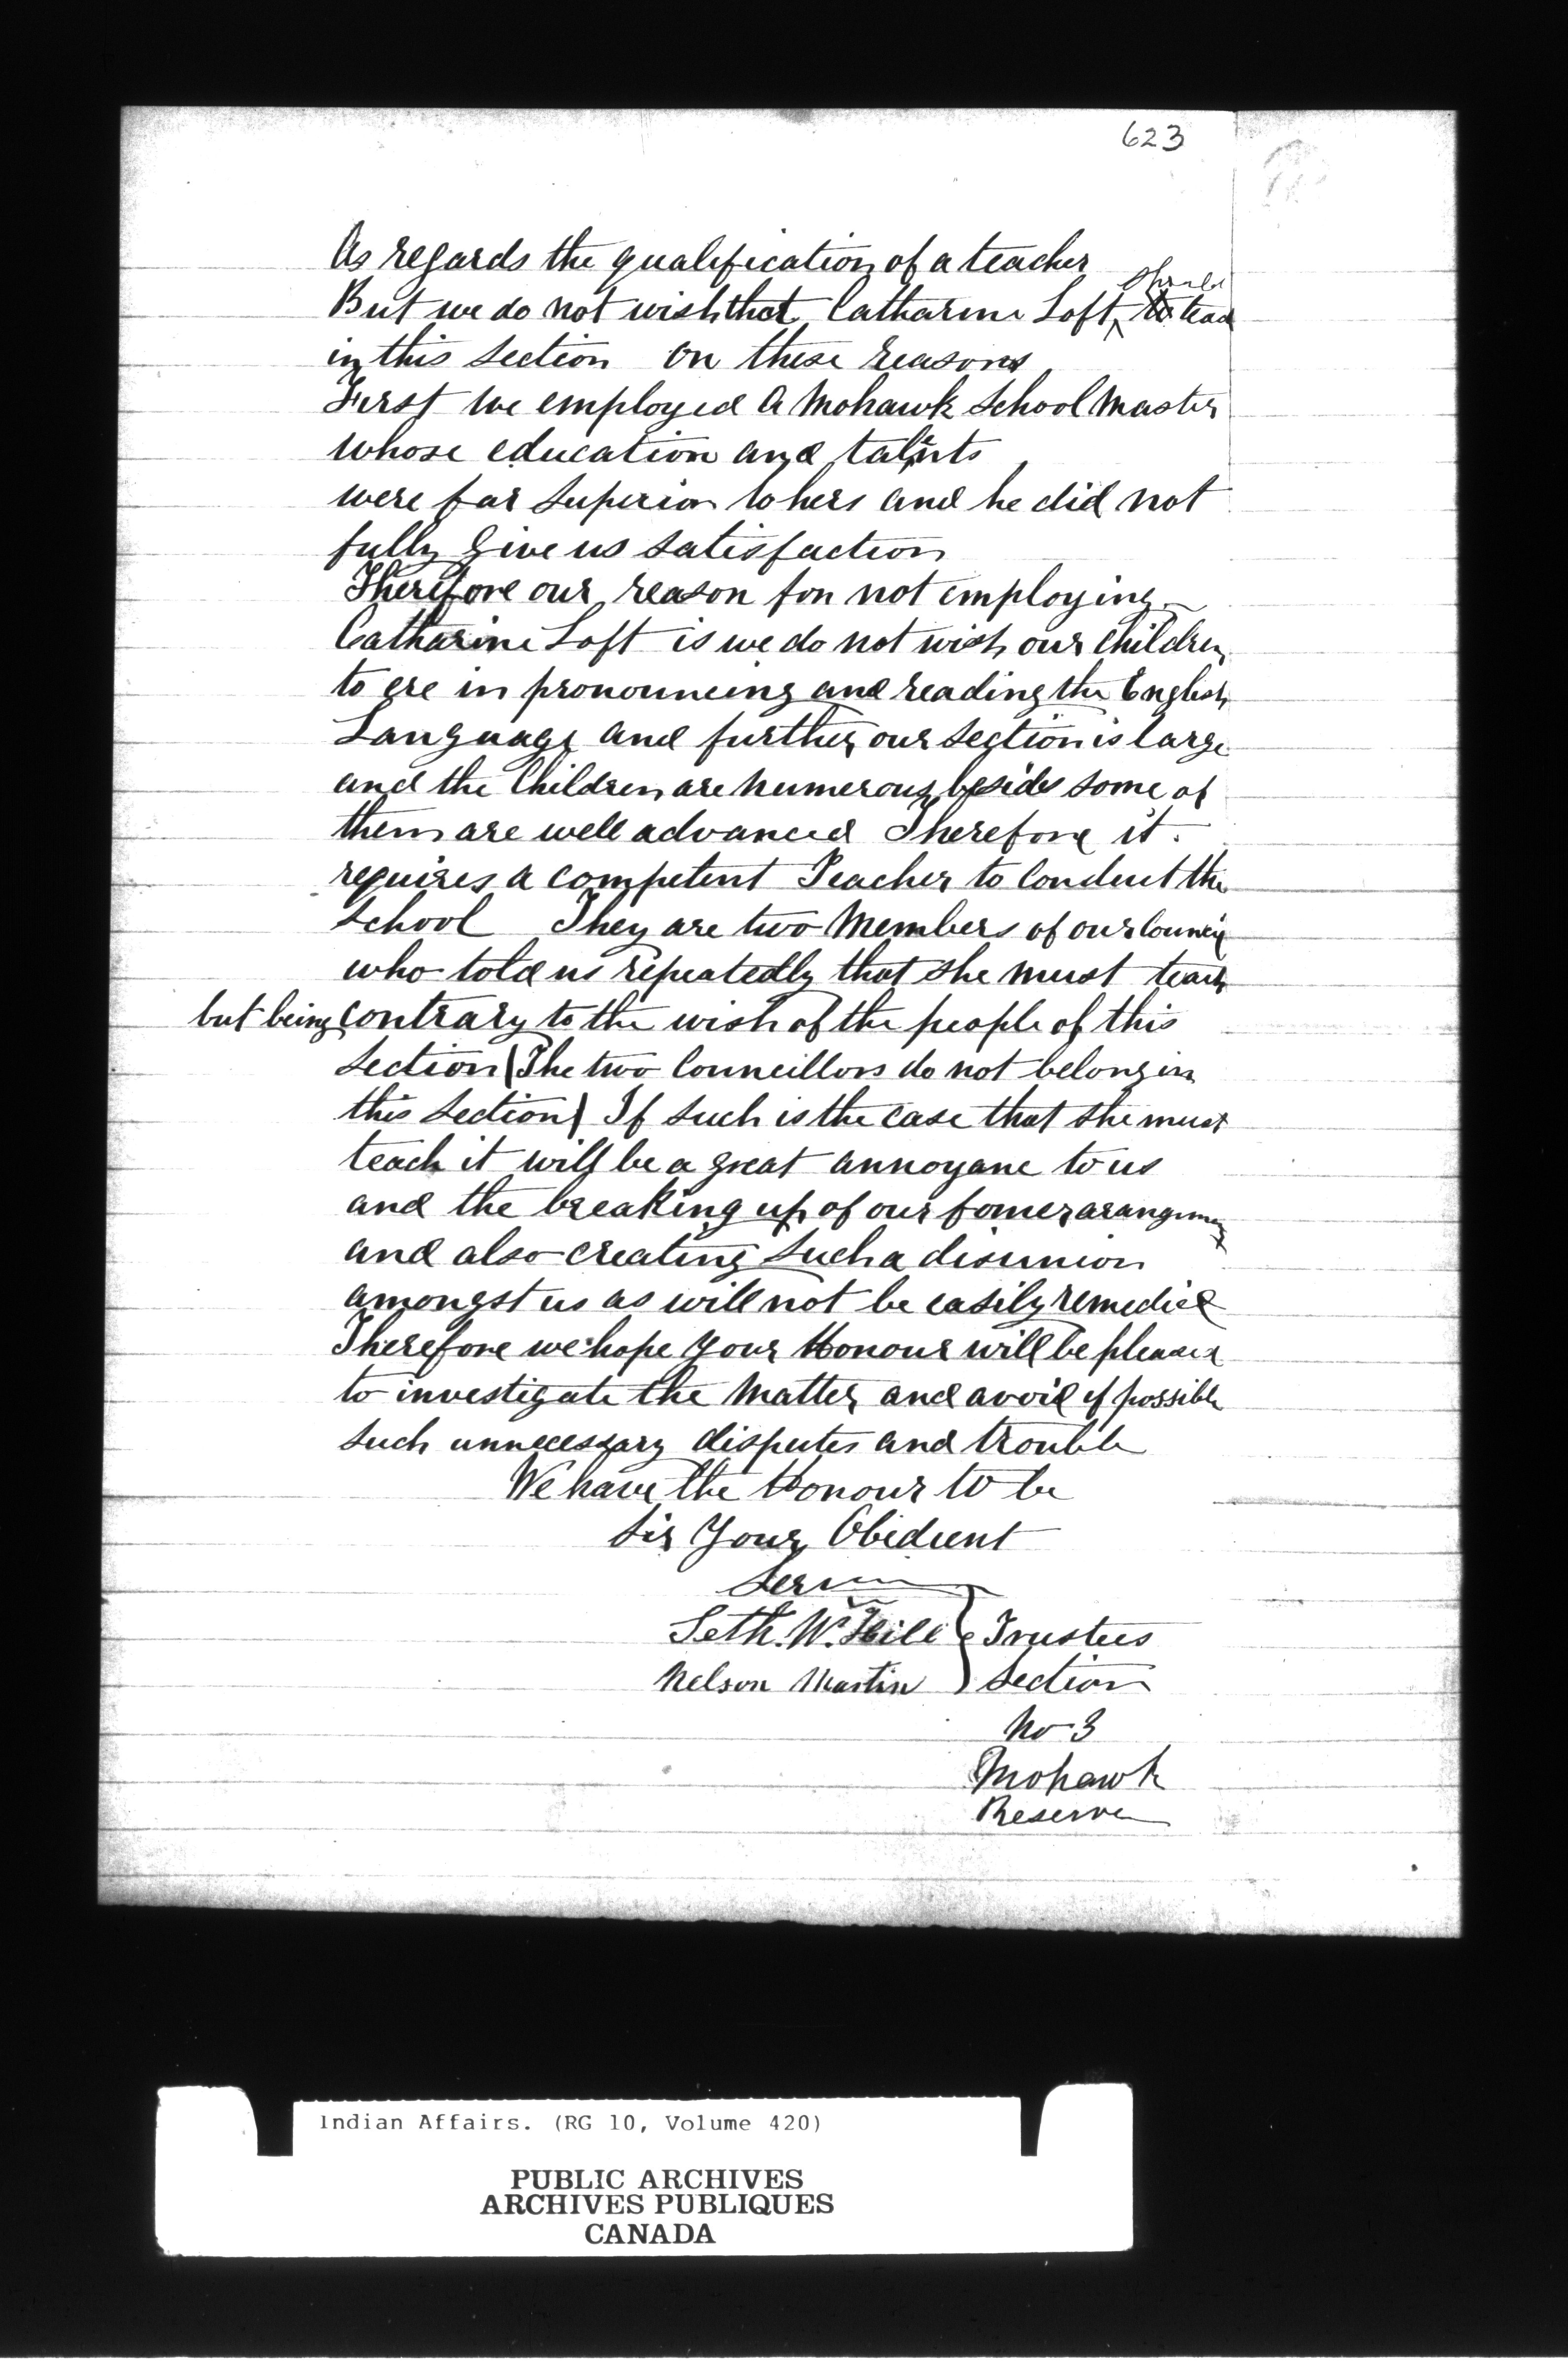 623
As regards the qualification of a teacher
should
But we do not wish that Catharine Loft to teach
in this Section on these reasons
First we employed a Mohawk School Master
whose education and talents
were far Superior to hers and he did not
fully give us satisfaction
Therefore our reason for not employing
Catharine Loft is we do not wish our Children
to ere in pronouncing and reading the English
Language and further our Section is large
and the Children are numerous besides some of
them are well advanced Therefore it
requires a competent Teacher to Conduct the
School They are two Members of our Council
who told us repeatedly that she must teach
but being contrary to the wish of the people of this
Section (The two Councillors do not belong in
this Section) If such is the case that she must
teach it will be a great annoyane to us
and the breaking up of our fomer arangment
and also creating such a disunion
amongst us as will not be easily remedied
Therefore we hope your Honour will be pleased
to investigate the Matter and avoid if possible
such unnecessary disputes and trouble
We have the Honour to be
Sir Your Obedient
Seth. W. Hill } Trustees
Nelson Martin } Section
No 3
Mohawk
Reserve
Indian Affairs. (RG 10, Volume 420)
PUBLIC ARCHIVES
ARCHIVES PUBLIQUES
CANADA